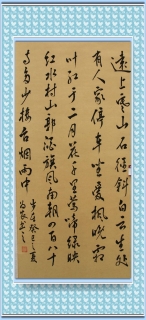 遠上寒山石徑斜白云生處
有人家停車坐愛楓晚霜
叶红于二月花千里莺啼绿映
红水村山郭酒旗风南朝四百八十
寺多少楼台烟雨中
癸巳之夏